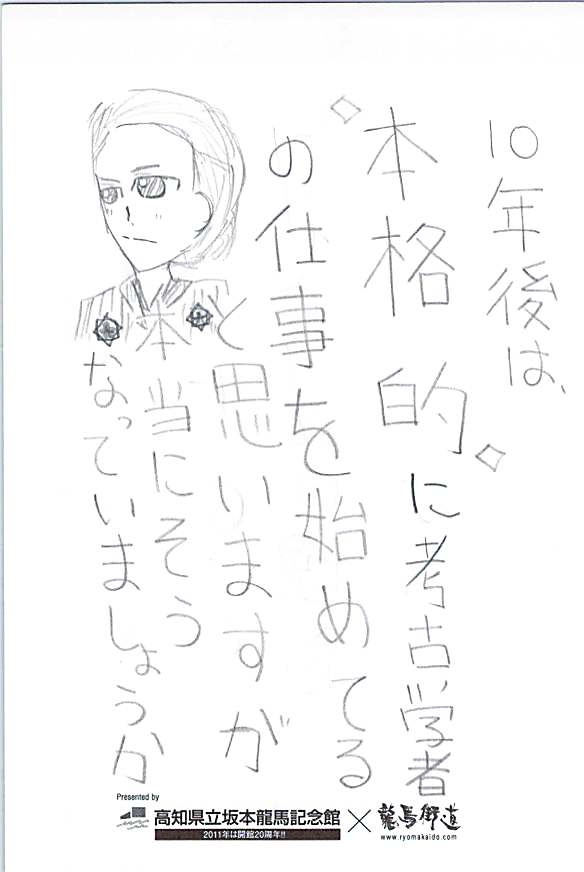 10年後は、
本格的に考古学者
の仕事を始めてる
と思いますが
本当にそう
なっていましょうか
Presented by
高知県立坂本龍馬記念館×龍馬街道
2011年は開館20周年!!
www.ryomakaido.com